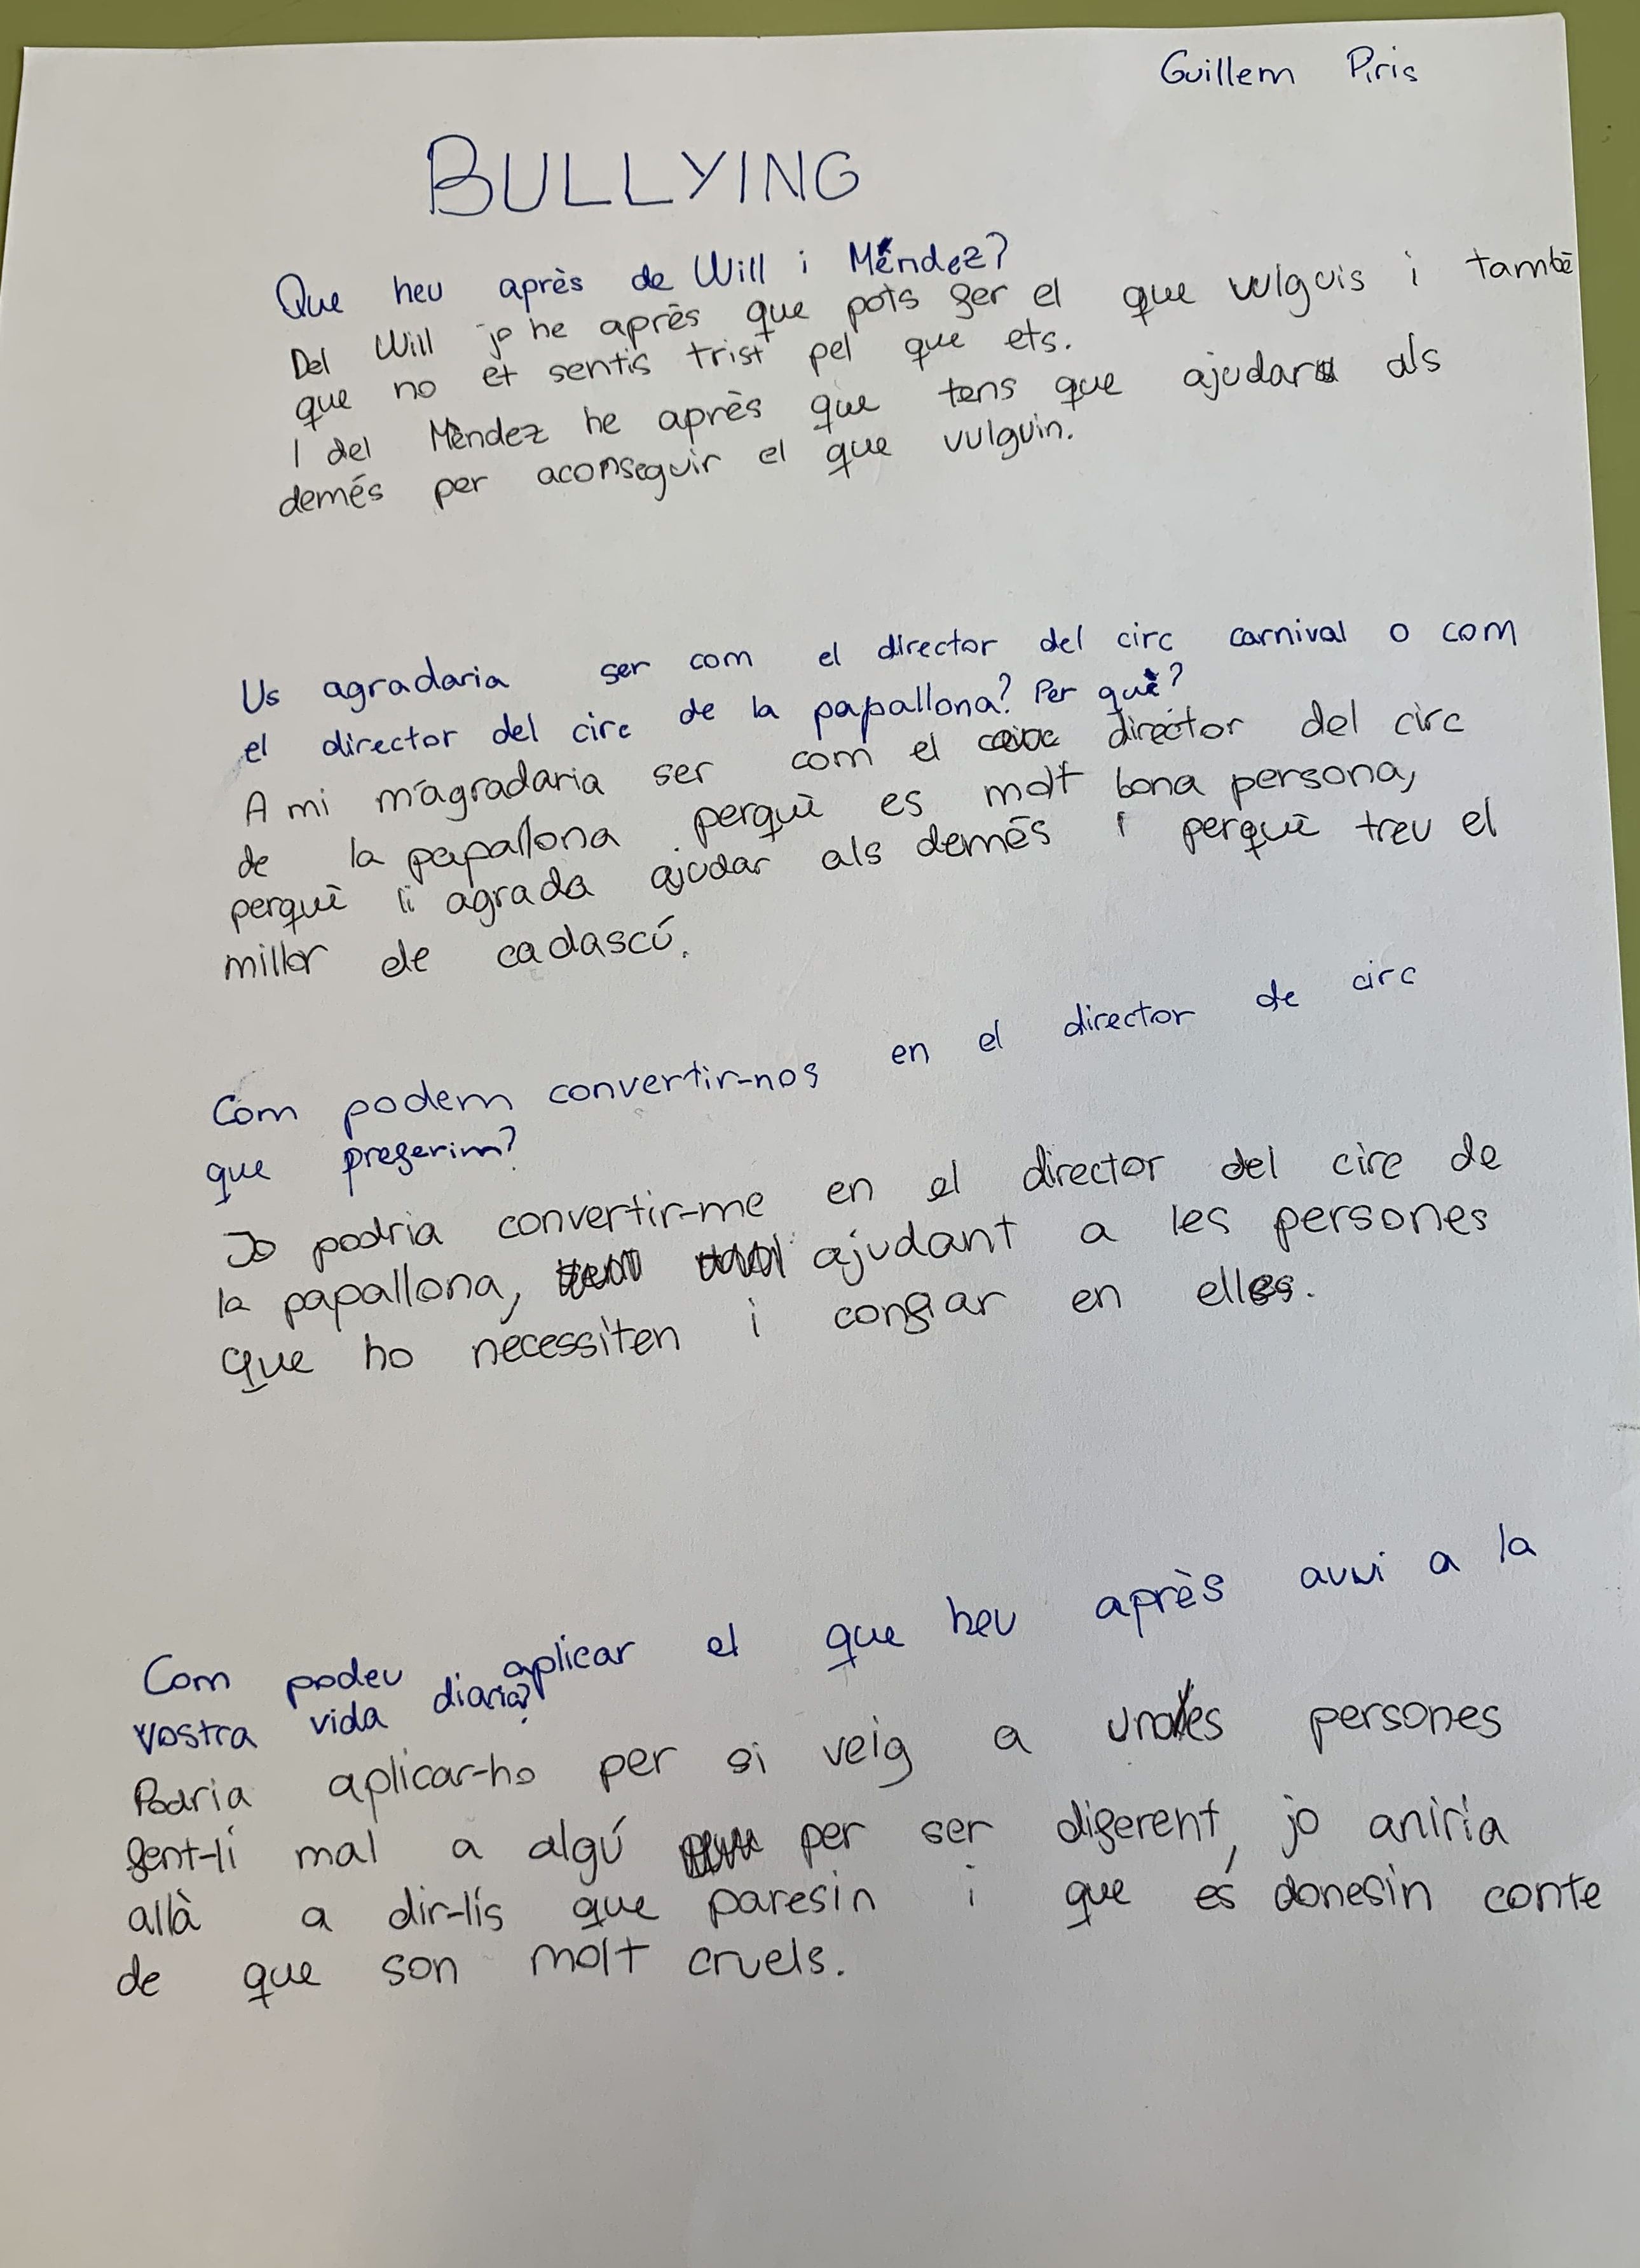 Guillem Piris
BULLYING
Que heu après de Will i Méndez?
Del Will jo he après que pots ser el que vulguis i també
que no et sentis trist pel que ets.
I del Méndez he après que tens que ajudar als
demés per aconseguir el que vulguin.
Us agradaria ser com el director del circ carnival o com
el director del circ de la papallona? Per què?
A mi m'agradaria ser com el director del circ
de la papallona perquè es molt bona persona,
perquè li agrada ajudar als demés i perquè treu el
millor de cadascú.
Com podem convertir-nos en el director de circ
que preferim?
Jo podria convertir-me en el director del circ de
la papallona, ajudant a les persones
que ho necessiten i confiar en elles.
Com podeu aplicar el que heu après avui a la
vostra vida diaria?
Podria aplicar-ho per si veig a unes persones
fent-li mal a algú per ser diferent, jo aniria
allà a dir-lis que paresin i que es donesin conte
de que son molt cruels.